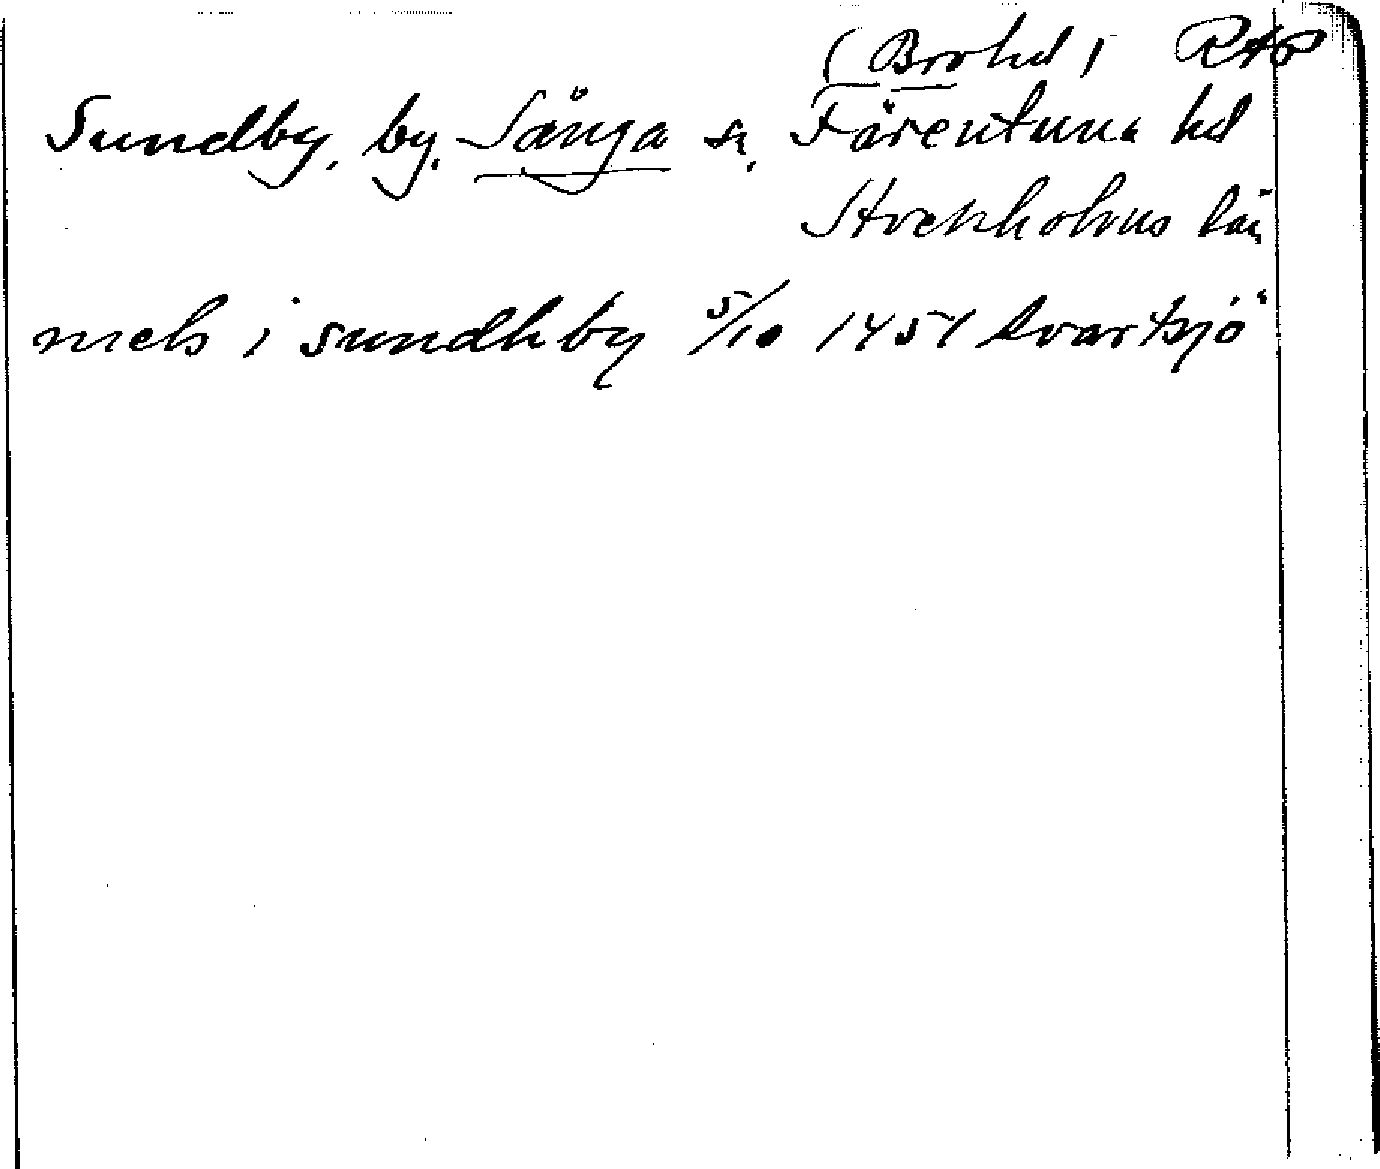 (Bro hd) RAP
Sundby, by. Sånga sn, Färentuna hd
Stockholms län
niels i sundhby 5/10 1451 Svartsjö